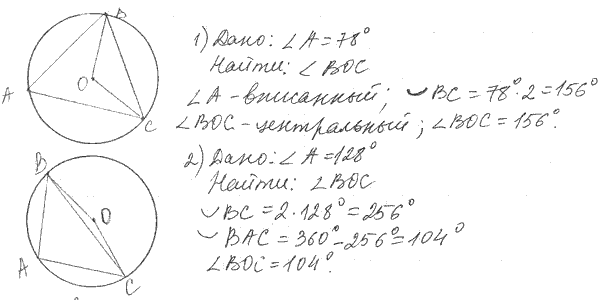 B
O
A
C
1) Дано: ∠A = 78°
Найти: ∠BOC
∠A - вписанный; ◡ BC = 78°·2 = 156°
∠BOC - центральный; ∠BOC = 156°.
B
O
A
C
2) Дано: ∠A = 128°
Найти: ∠BOC
◡ BC = 2·128° = 256°
◡ BAC = 360° - 256° = 104°
∠BOC = 104°.